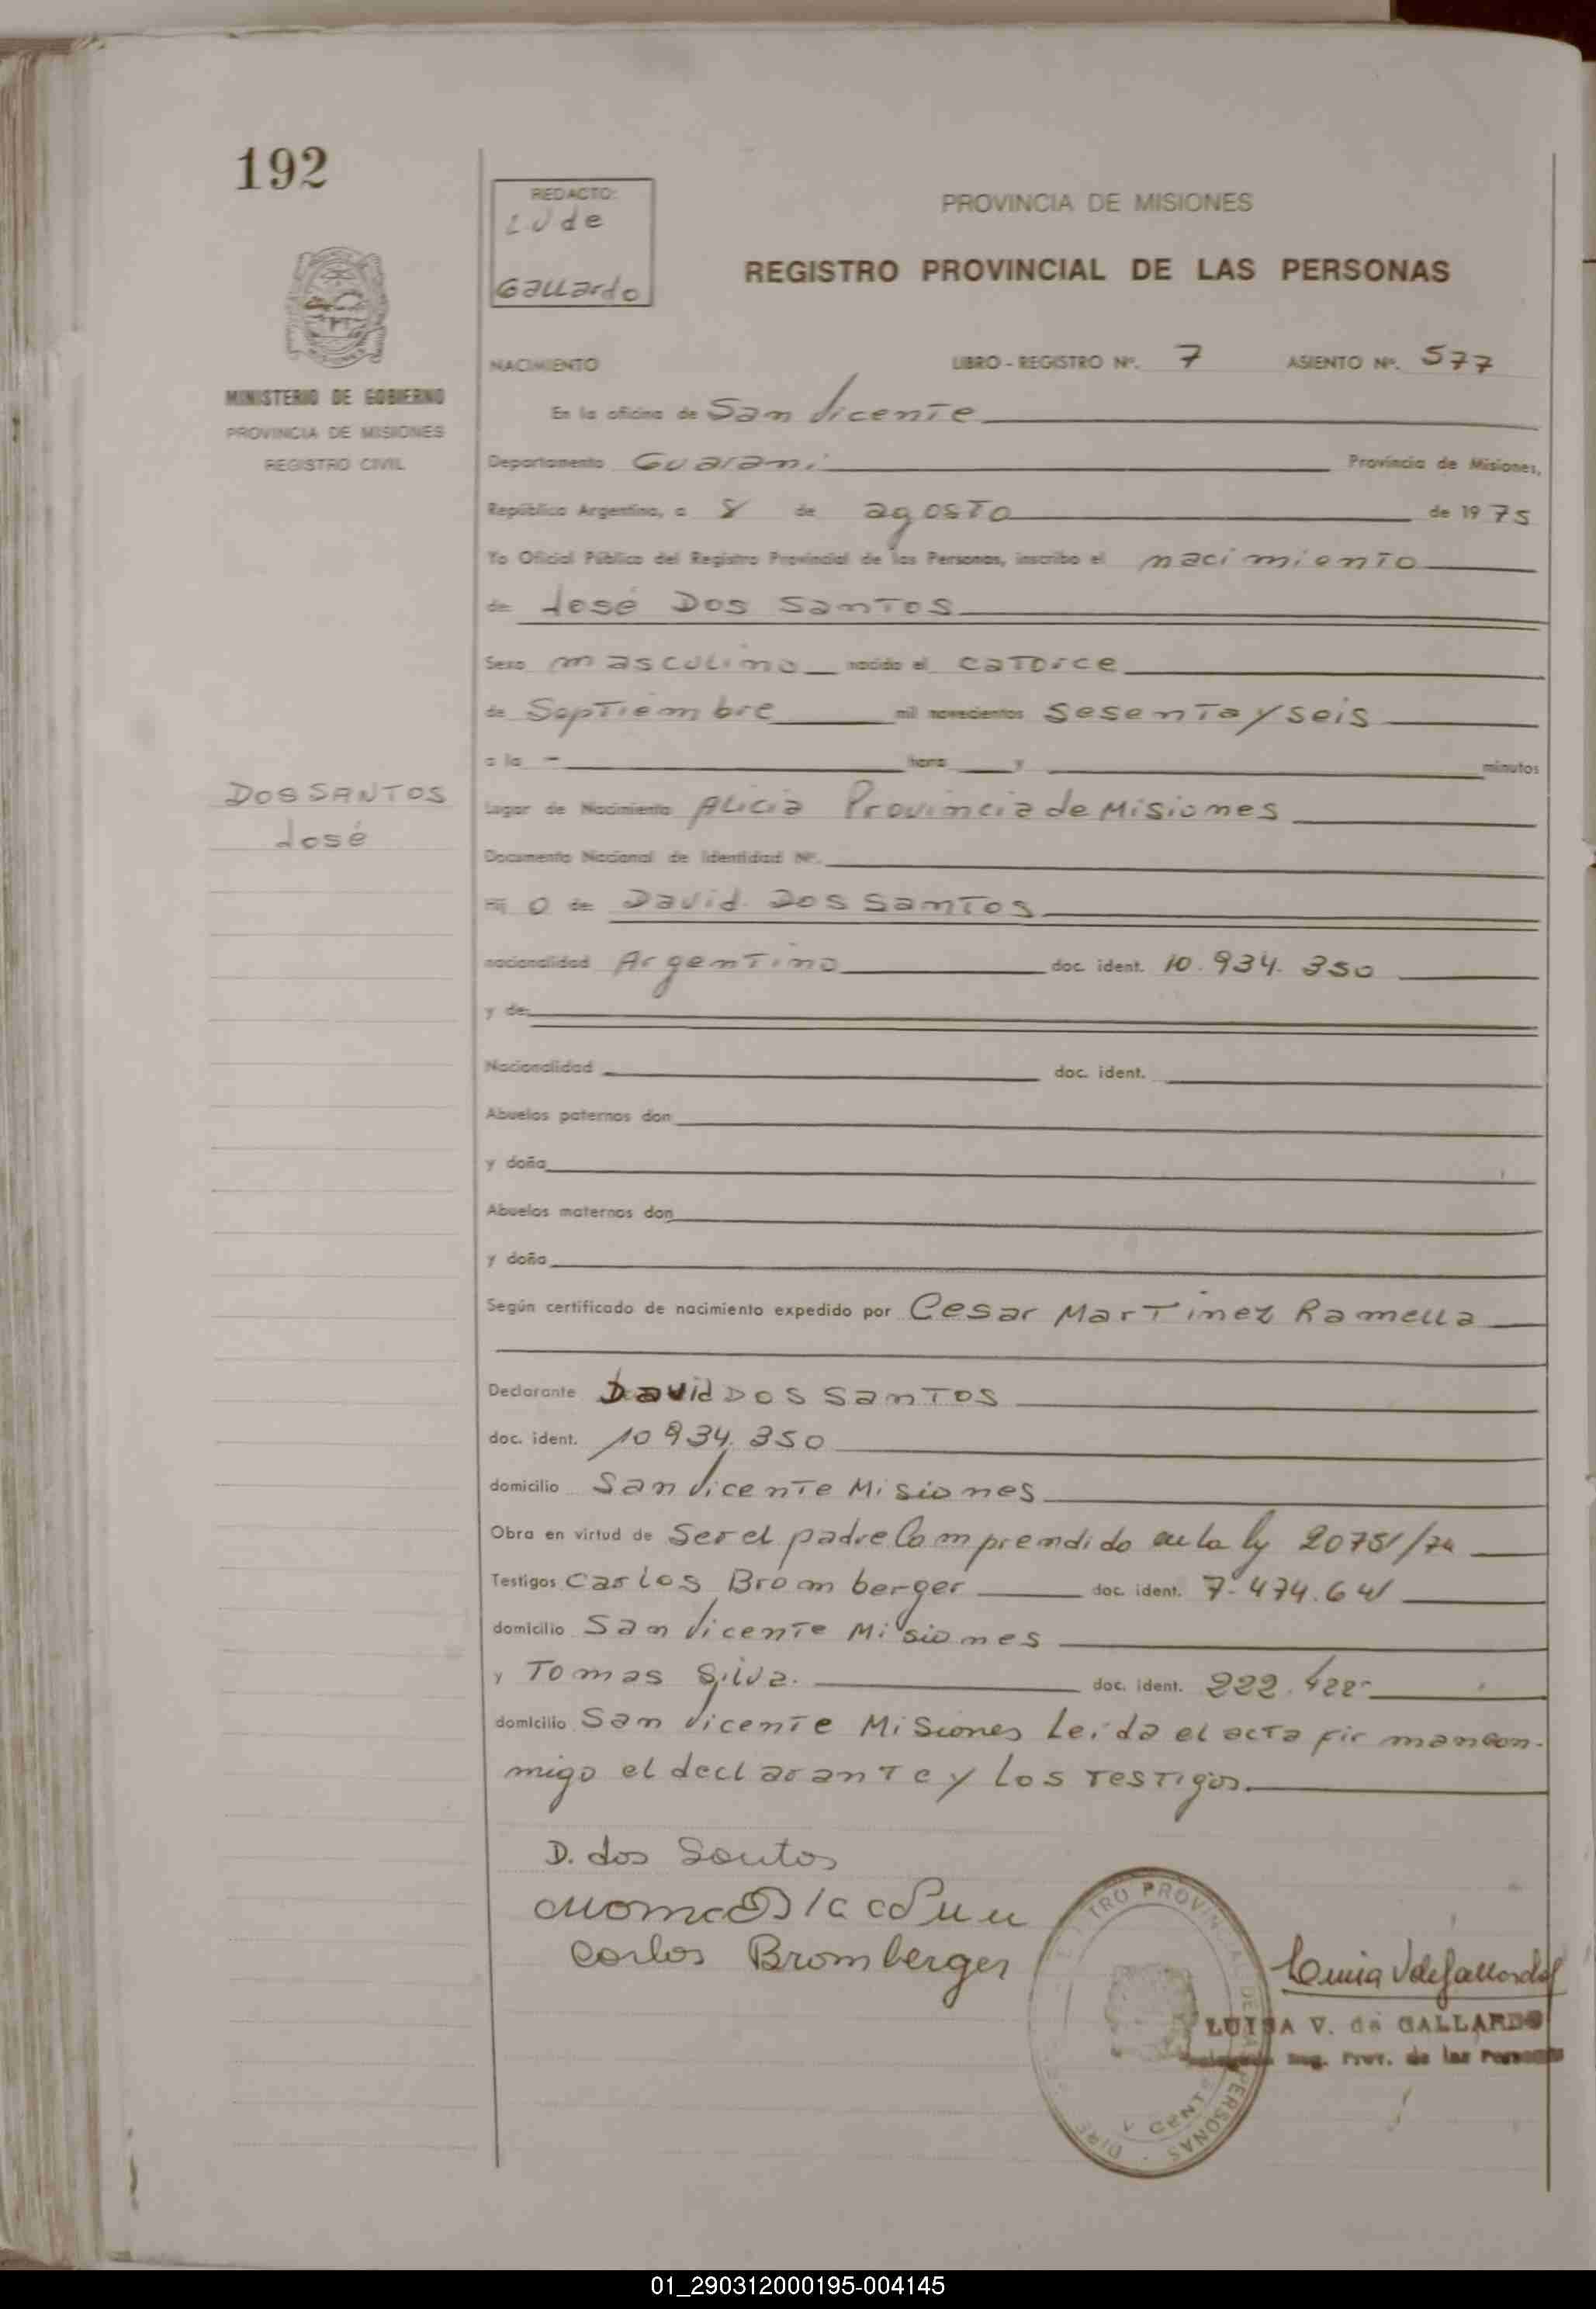 192
REDACTO:
L.V de
Gallardo
PROVINCIA DE MISIONES
REGISTRO PROVINCIAL DE LAS PERSONAS
MINISTERIO DE GOBIERNO
PROVINCIA DE MISIONES
REGISTRO CIVIL
NACIMIENTO LIBRO - REGISTRO Nº. 7 ASIENTO Nº. 577
En la oficina de San Vicente
Departamento Guarani Provincia de Misiones,
República Argentina, a 8 de agosto de 1975
Yo Oficial Público del Registro Provincial de las Personas, inscribo el nacimiento
de José Dos Santos
Sexo masculino nacido el catorce
de Septiembre mil novecientos sesenta y seis
a la - hora y minutos
DOS SANTOS
José
Lugar de Nacimiento Alicia Provincia de Misiones
Documento Nacional de Identidad Nº.
Hij o de David Dos Santos
nacionalidad Argentino doc. ident. 10.934.350
y de
Nacionalidad doc. ident.
Abuelos paternos don
y doña
Abuelos maternos don
y doña
Según certificado de nacimiento expedido por Cesar Martinez Ramella
Declarante David Dos Santos
doc. ident. 10 934.350
domicilio San Vicente Misiones
Obra en virtud de Ser el padre Comprendido en la ley 20751/74
Testigos Carlos Bromberger doc. ident. 7.474.641
domicilio San Vicente Misiones
y Tomas Silva. doc. ident. 222.422
domicilio San Vicente Misiones Leida el acta firman con-
migo el declarante y los testigos.
D. dos Santos
Carlos Bromberger
Luisa V de Gallardo
LUISA V. de GALLARDO
Reg. Prov. de las Personas
PROVINCIAL DE LAS PERSONAS
01_290312000195-004145